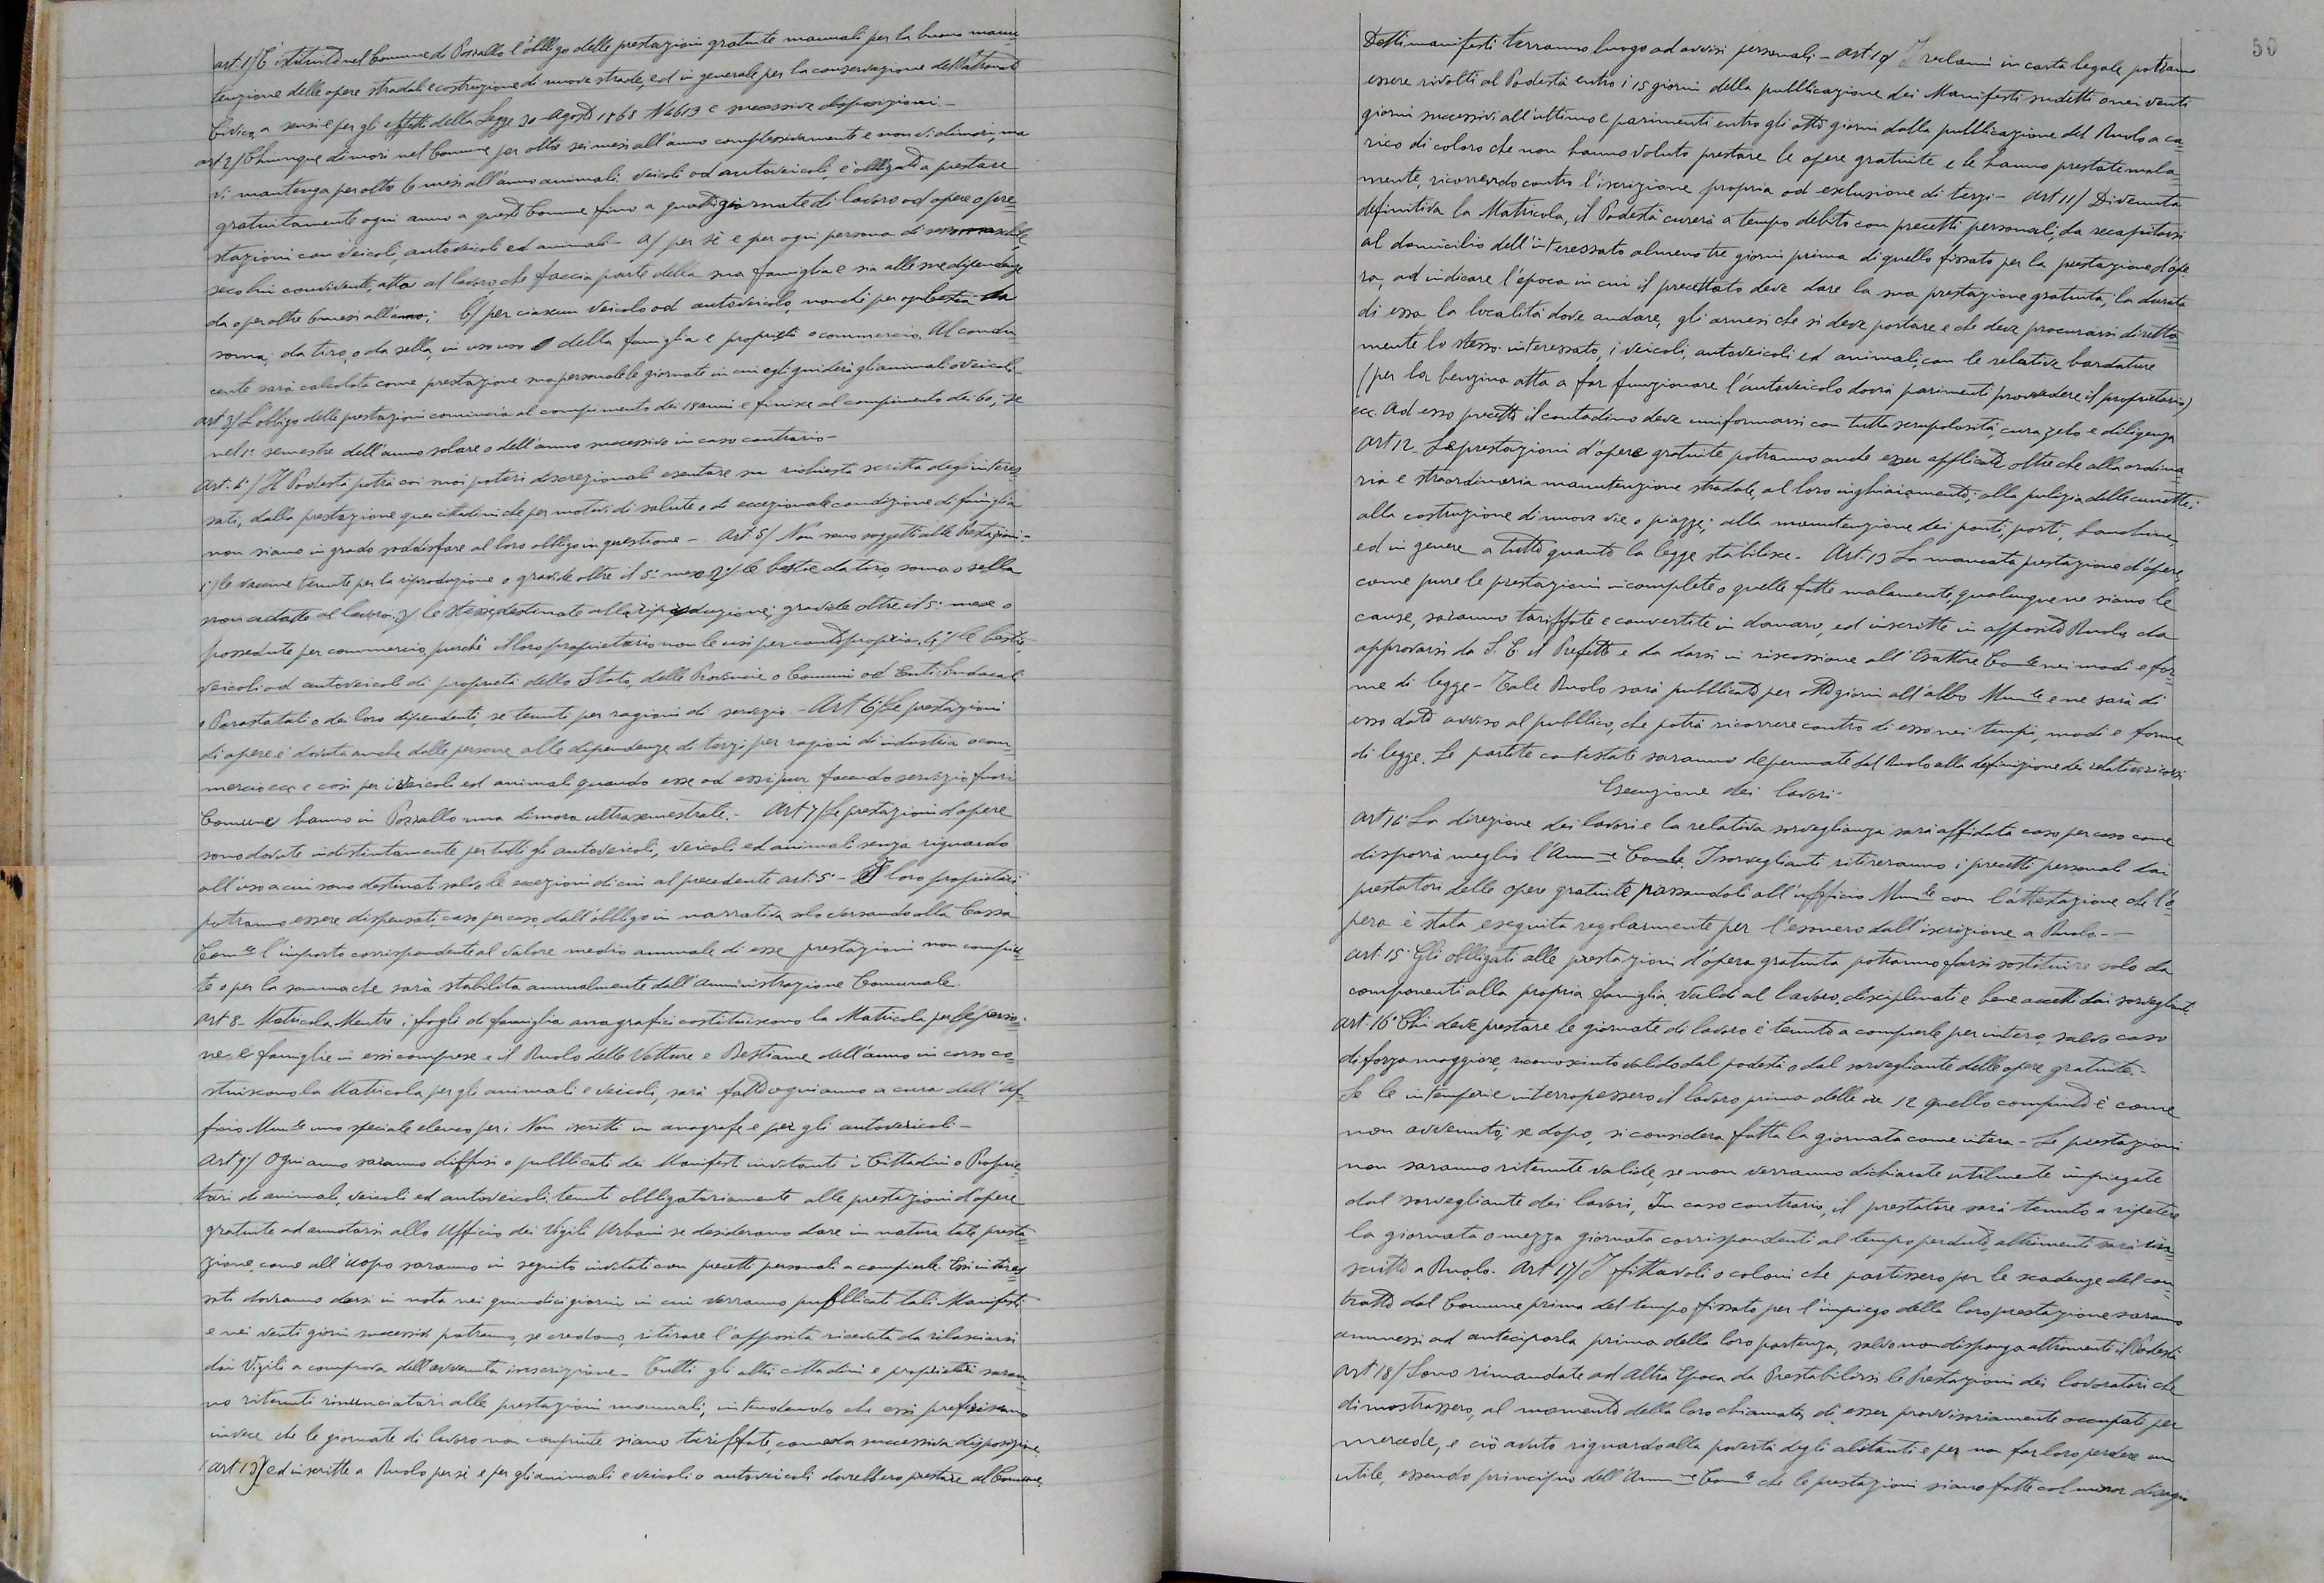 art 1/ È istituito nel Comune di Pozzallo l'obbligo delle prestazioni gratuite manuali per la buona manu-
tenzione delle opere stradali e costruzione di nuove strade, ed in generale per la conservazione dell'abitato
Civico, a sensi e per gli effetti della Legge 30 Agosto 1868 N 4613 e successive disposizioni.-
art 2/ Chiunque dimori nel Comune per oltre sei mesi all'anno complessivamente e non vi dimori, ma
vi mantenga per oltre 6 mesi all'anno animali: veicoli od autoveicoli, è obbligato a prestare
gratuitamente ogni anno a questo Comune fino a quattro giornate di lavoro od opere o pre-
stazioni con veicoli, autoveicoli ed animali - a/ per sè e per ogni persona di sesso maschile,
seco lui convivente, atta al lavoro, che faccia parte della sua famiglia e sia alle sue dipendenze
da o per oltre 6 mesi all'anno; b/ per ciascun veicolo od autoveicolo, nonchè per ogni bestia da
soma, da tiro, o da sella, in uso della famiglia e proprietà o commercio. Al condu-
cente sarà calcolata come prestazione sua personale le giornate in cui egli guiderà gli animali o veicoli-
art 3/ L'obbligo delle prestazioni comincia al compimento dei 18 anni e finisce al compimento dei 60, se
nel 1° semestre dell'anno solare o dell'anno successivo in caso contrario-
art. 4°/ Il Podestà potrà coi suoi poteri discrezionali esentare su richiesta scritta degli interes-
sati, dalla prestazione quei cittadini che per motivi di salute o di eccezionale condizione di famiglia
non siano in grado soddisfare al loro obbligo in questione - Art 5/ Non sono soggetti alle Prestazioni:-
1°/ le vaccine tenute per la riproduzione o gravide oltre il 5° mese 2°/ le bestie da tiro, soma o sella
non adatte al lavoro; 3/ le stesse destinate alla riproduzione; gravide oltre il 5° mese o
possedute per commercio, purchè il loro proprietario non le usi per conto proprio. 4°/ le bestie,
veicoli od autoveicoli di proprietà dello Stato, delle Provincie o Comuni od Enti Sindacali
o Parastatali o dei loro dipendenti, se tenuti per ragioni di servizio. - Art 6°/ Le prestazioni
di opere è dovuta anche dalle persone alle dipendenze di terzi per ragioni di industria o com-
mercio ecc e così per i veicoli ed animali quando esse od essi pur facendo servizio fuori
Comune hanno in Pozzallo una dimora ultrasemestrale. - Art 7/ Le prestazioni d'opere
sono dovute indistintamente per tutti gli autoveicoli, veicoli ed animali senza riguardo
all'uso a cui sono destinati salvo le eccezioni di cui al precedente art. 5° - I loro proprietari
potranno essere dispensati, caso per caso, dall'obbligo in narrativa solo versando alla Cassa
Com.le l'importo corrispondente al valore medio annuale di esse prestazioni non compiu-
te o per la somma che sarà stabilita annualmente dall'Amministrazione Comunale.
Art 8 - Matricola Mentre i fogli di famiglia anagrafici costituiscono la Matricola per le perso-
ne e famiglie in essi comprese e il Ruolo delle Vetture e Bestiame dell'anno in corso co-
stuiscono la Matricola per gli animali e veicoli, sarà fatto ogni anno a cura dell'Uf-
ficio Mun.le uno speciale elenco per i Non iscritti in anagrafe e per gli autoveicoli -
Art 9/ Ogni anno saranno diffusi o pubblicati dei Manifesti invitanti i Cittadini o Proprie-
tari di animali, veicoli ed autoveicoli, tenuti obbligatoriamente alle prestazioni d'opere
gratuite ad annotarsi allo Ufficio dei Vigili Urbani se desiderano dare in natura tale presta-
zione, come all'uopo saranno in seguito invitati con precetti personali a compierle. Essi interes-
sati dovranno darsi in nota nei quindici giorni in cui verranno pubblicati tali Manifesti
e nei venti giorni successivi potranno, se credono, ritirare l'apposita ricevuta da rilasciarsi
dai Vigili a comprova dell'avvenuta inscrizione - Tutti gli altri cittadini e proprietari saran-
no ritenuti rinunciatari alle prestazioni manuali, intendendo che essi preferiscano
invece che le giornate di lavoro non compiute siano tariffate, come da successiva disposizione
(art 13) ed inscritte a Ruolo per sè e per gli animali e veicoli o autoveicoli dovrebbero prestare al Comune.
50
Detti manifesti terranno luogo ad avvisi personali - Art 10/ I reclami in carta legale, potranno
essere rivolti al Podestà entro i 15 giorni della pubblicazione dei Manifesti sudetti o nei venti
giorni successivi all'ultimo e parimenti entro gli otto giorni dalla pubblicazione del Ruolo a ca-
rico di coloro che non hanno voluto prestare le opere gratuite e le hanno prestate mala-
mente, ricorrendo contro l'iscrizione propria od esclusione di terzi - Art 11/ Divenuta
definitiva la Matricola, il Podestà curerà a tempo debito con precetti personali, da recapitarsi
al domicilio dell'interessato almeno tre giorni prima di quello fissato per la prestazione d'ope-
ra, ad indicare l'epoca in cui il precettato deve dare la sua prestazione gratuita, la durata
di essa la località dove andare, gli arnesi che si deve portare e che deve procurarsi diretta-
mente lo stesso interessato, i veicoli, autoveicoli ed animali, con le relative bardature
(per la benzina atta a far funzionare l'autoveicolo dovrà parimenti provvedere il proprietario)
ecc. Ad esso precetto il contadino deve uniformarsi con tutta scrupolosità, cura zelo e diligenza
Art 12. Le prestazioni d'opere gratuite potranno anche esser applicate oltre che alla ordina-
ria e straordinaria manutenzione stradale, al loro inghiaiamento; alla pulizia delle cunette;
alla costruzione di nuove vie o piazze; alla manutenzione dei ponti, porti, banchine,
ed in genere a tutto quanto la legge stabilisce - Art. 13 La mancata prestazione d'opere,
come pure le prestazioni incomplete o quelle fatte malamente, qualunque ne siano le
cause, saranno tariffate e convertite in danaro, ed inscritte in apposito Ruolo, da
approvarsi da S. E il Prefetto e da darsi in riscossione all'Esattore Com.le nei modi e for-
me di legge - Tale Ruolo sarà pubblicato per otto giorni all'albo Mun.le e ne sarà di
esso dato avviso al pubblico, che potrà ricorrere contro di esso nei tempi, modi e forme
di legge. Le partite contestate saranno depennate dal Ruolo alla definizione dei relativi ricorsi
Esecuzione dei lavori -
Art 14° La direzione dei lavori e la relativa sorveglianza sarà affidata caso per caso come
disporrà meglio l'Amm.ne Com.le. I sorveglianti ritireranno i precetti personali dai
prestatori delle opere gratuite passandoli all'ufficio Mun.le con l'attestazione che l'o-
pera è stata eseguita regolarmente per l'esonero dall'iscrizione a Ruolo. -
Art. 15° Gli obbligati alle prestazioni d'opera gratuita potranno farsi sostituire solo da
componenti alla propria famiglia, validi al lavoro, disciplinati e bene accetti dai sorveglianti.
Art 16° Chi deve prestare le giornate di lavoro è tenuto a compierle per intero, salvo caso
di forza maggiore, riconosciuto valido dal podestà o dal sorvegliante delle opere gratuite.-
Se le intemperie interrompessero il lavoro prima delle ore 12 quello compiuto è come
non avvenuto; se dopo, si considera fatta la giornata come intera - Le prestazioni
non saranno ritenute valide, se non verranno dichiarate utilmente impiegate
dal sorvegliante dei lavori, In caso contrario, il prestatore sarà tenuto a ripetere
la giornata o mezza giornata corrispondenti al tempo perduto, altrimenti sarà in-
scritto a Ruolo. Art 17/ I fittavoli o coloni che partissero per le scadenze del con-
tratto dal Comune prima del tempo fissato per l'impiego della loro prestazione saranno
ammessi ad anteciparla prima della loro partenza, salvo non disponga altrimenti il Podestà
Art 18/ Sono rimandate ad altra Epoca da Prestabilirsi le Prestazioni dei lavoratori che
dimostrassero, al momento della loro chiamata, di esser provvisoriamente occupati per
mercede, e ciò avuto riguardo alla povertà degli abitanti e per non far loro perdere un
utile, essendo principio dell'Amm.ne Com.le che le prestazioni siano fatte col minor disagio